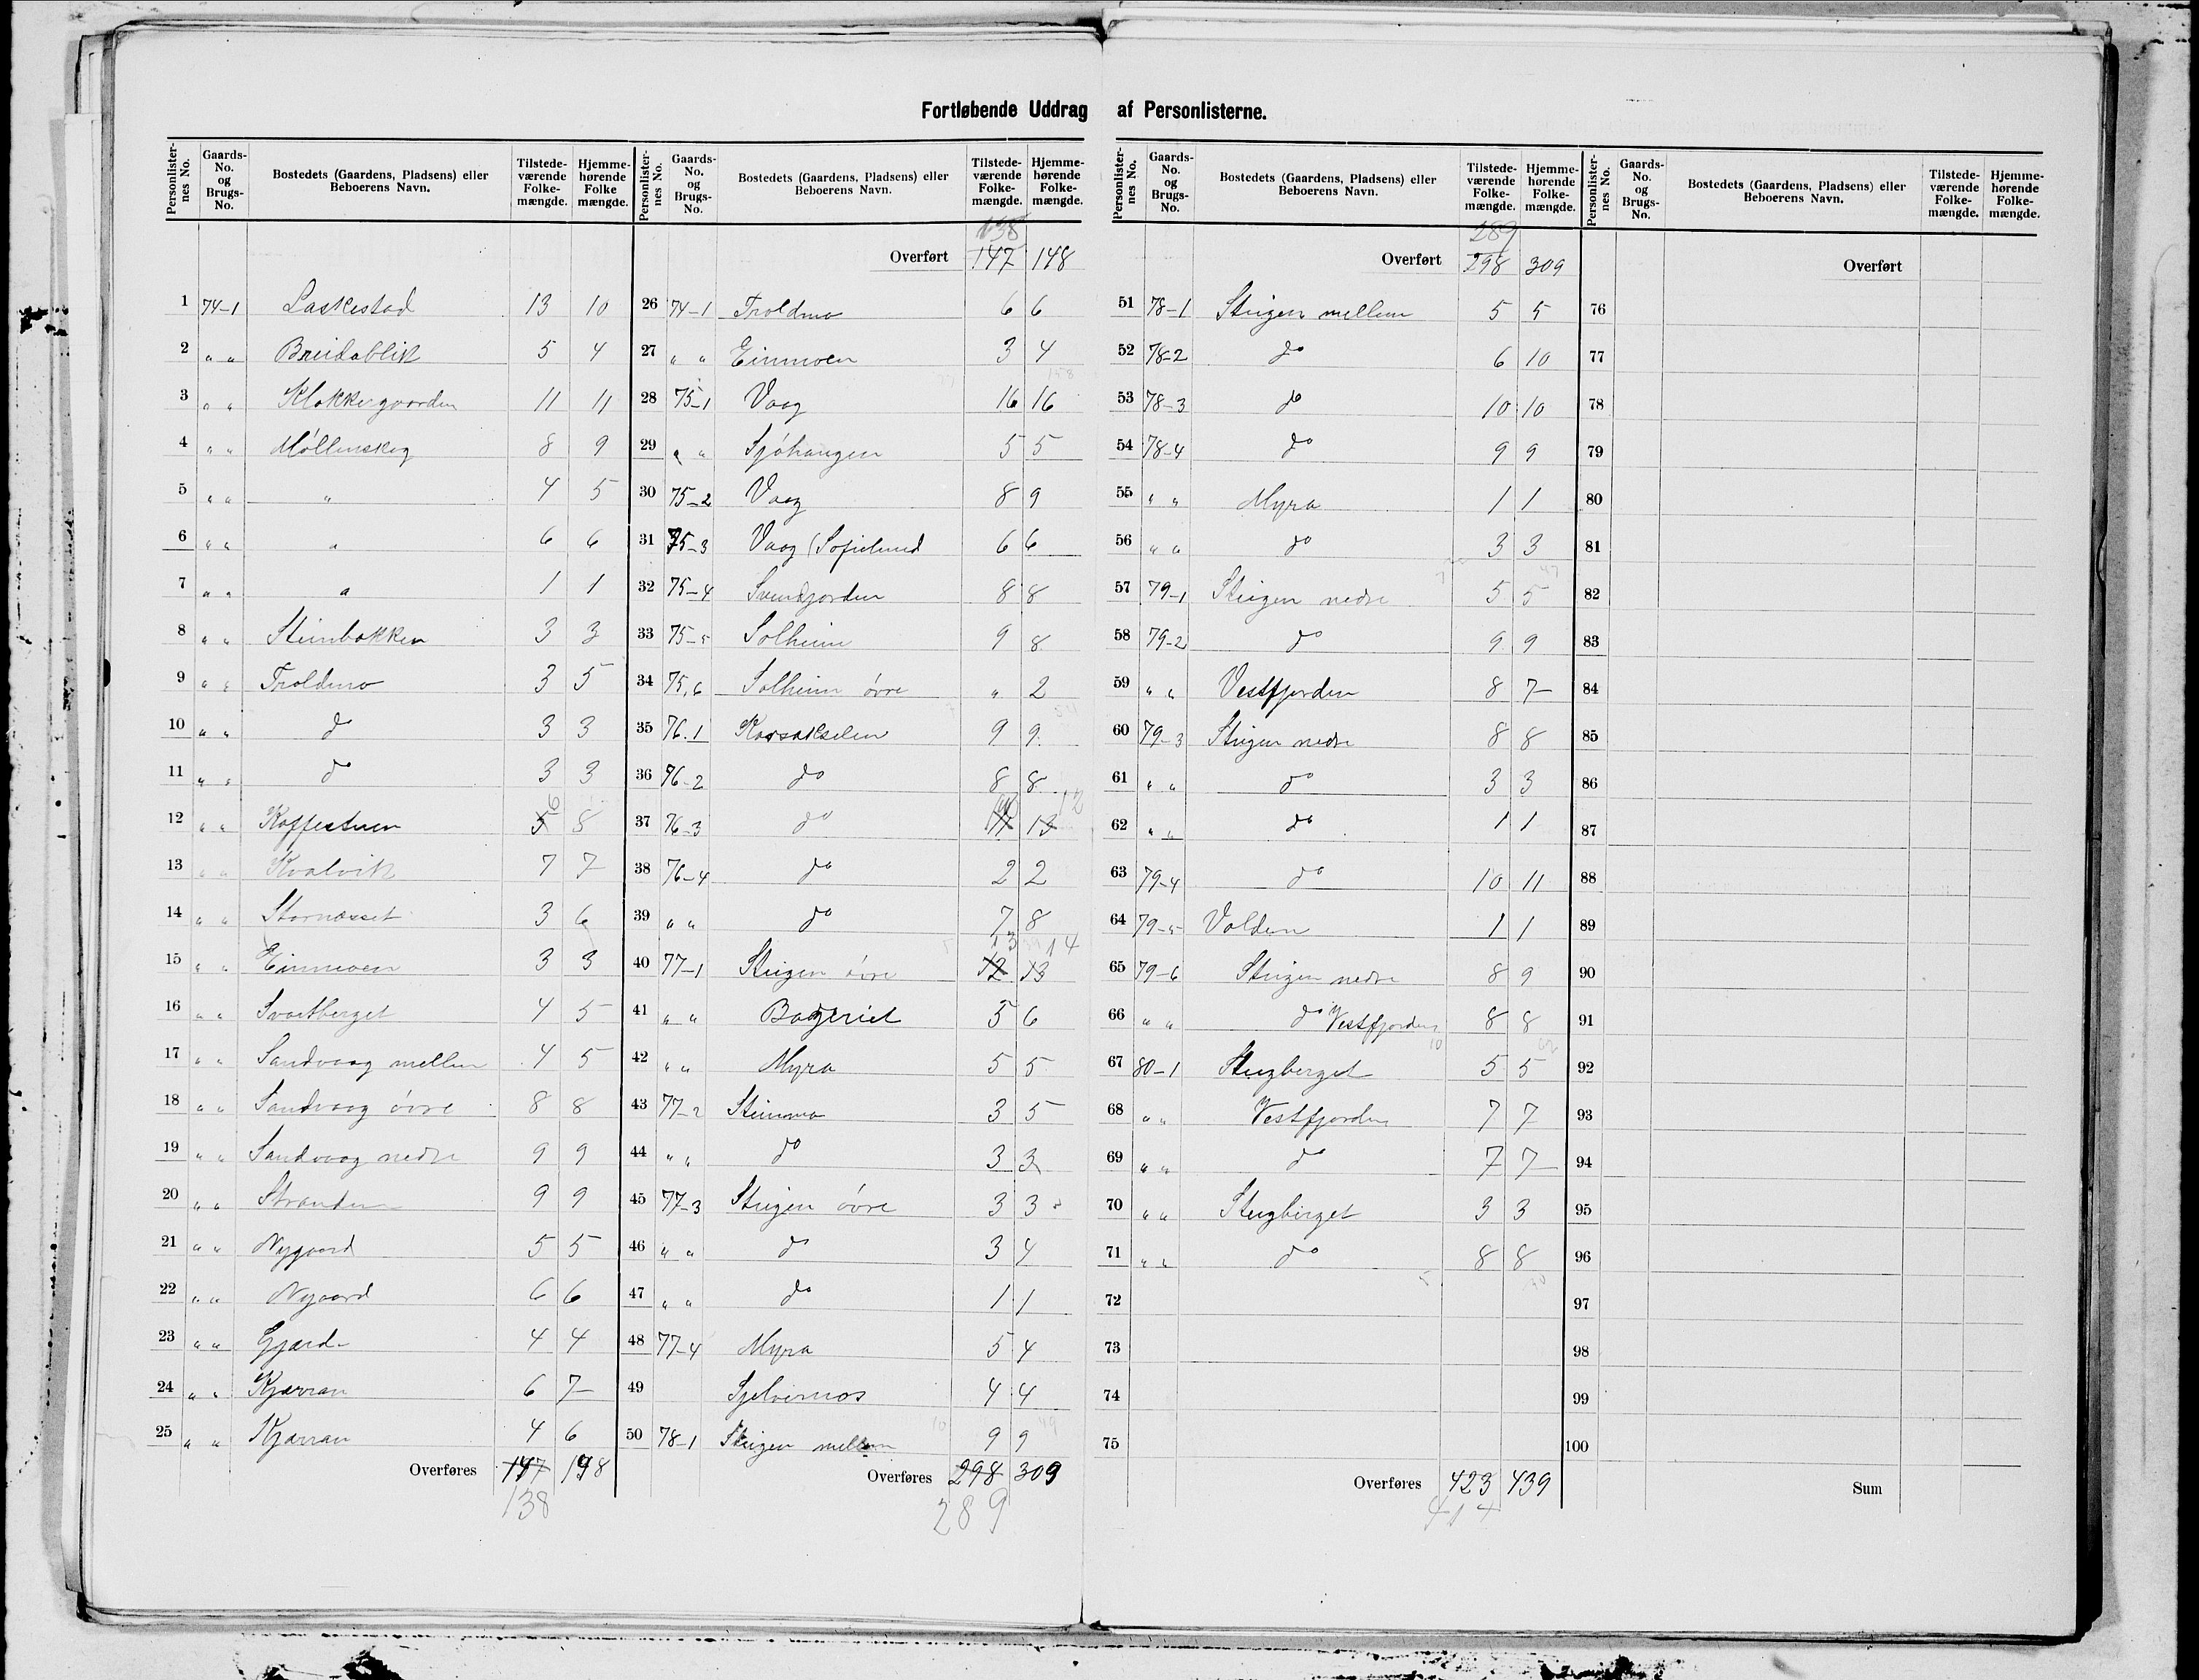 Fortløbende Uddrag af Personlisterne.
Personlister-nes No. | Gaards-No. og Brugs-No. | Bostedets (Gaardens, Pladsens) eller Beboerens Navn. | Tilstede-værende Folke-mængde. | Hjemme-hørende Folke mængde.
1 74-1 Laskestad 13 10
2 " " Breidablik 5 4
3 " " Klokkergaarden 11 11
4 " " Møllenskog 8 9
5 " " " 4 5
6 " " " 6 6
7 " " " 1 1
8 " " Steinbakken 3 3
9 " " Troldmo 3 5
10 " " do 3 3
11 " " do 3 3
12 " " Kaffestuen 5 6 8
13 " " Kvalvik 7 7
14 " " Stornæsset 3 6
15 " " Einmoen 3 3
16 " " Svartberget 4 5
17 " " Sandvaag mellem 4 5
18 " " Sandvaag øvre 8 8
19 " " Sandvaag nedre 9 9
20 " " Stranden 9 9
21 " " Nygaard 5 5
22 " " Nygaard 6 6
23 " " Gjærd 4 4
24 " " Kjærran 6 7
25 " " Kjærran 4 6
Overføres 147 148
138
Personlister-nes No. | Gaards-No. og Brugs-No. | Bostedets (Gaardens, Pladsens) eller Beboerens Navn. | Tilstede-værende Folke-mængde. | Hjemme-hørende Folke-mængde.
138
Overført 147 148
26 74-1 Troldmo 6 6
27 " " Einmoen 3 4
28 75-1 Vaag 16 16
29 " " Sjøhaugen 5 5
30 75-2 Vaag 8 9
31 75-3 Vaag (Sofielund 6 6
32 75-4 Svendjorden 8 8
33 75-5 Solheim 9 8
34 75,6 Solheim øvre " 2
35 76.1 Korsakselen 9 9
36 76-2 do 8 8
37 76-3 do 13 12
38 76-4 do 2 2
39 " " do 7 8
40 77-1 Steigen øvre 12 13 13 14
41 " " Bageriet 5 6
42 " " Myra 5 5
43 77-2 Steinmo 3 5
44 " " do 3 3
45 77-3 Steigen øvre 3 3
46 " " do 3 4
47 " " do 1 1
48 77-4 Myra 5 4
49 Sjelvernos 4 4
50 78-1 Steigen mellem 9 9
Overføres 298 309
289
Personlister-nes No. | Gaards-No. og Brugs-No. | Bostedets (Gaardens, Pladsens) eller Beboerens Navn. | Tilstede-værende Folke-mængde. | Hjemme-hørende Folke-mængde.
289
Overført 298 309
51 78-1 Steigen mellem 5 5
52 78-2 do 6 10
53 78-3 do 10 10
54 78-4 do 9 9
55 " " Myra 1 1
56 " " do 3 3
57 79-1 Steigen nedre 5 5
58 79-2 do 9 9
59 " " Vestfjorden 8 7
60 79-3 Steigen nedre 8 8
61 " " do 3 3
62 " " do 1 1
63 79-4 do 10 11
64 79-5 Volden 1 1
65 79-6 Steigen nedre 8 9
66 " " do Vestfjorden 8 8
67 80-1 Steigberget 5 5
68 " " Vestfjorden 7 7
69 " " do 7 7
70 " " Steigberget 3 3
71 " " do 8 8
72
73
74
75
Overføres 423 439
414
Personlister-nes No. | Gaards-No. og Brugs-No. | Bostedets (Gaardens, Pladsens) eller Beboerens Navn. | Tilstede-værende Folke-mængde. | Hjemme-hørende Folke-mængde.
Overført
76
77
78
79
80
81
82
83
84
85
86
87
88
89
90
91
92
93
94
95
96
97
98
99
100
Sum